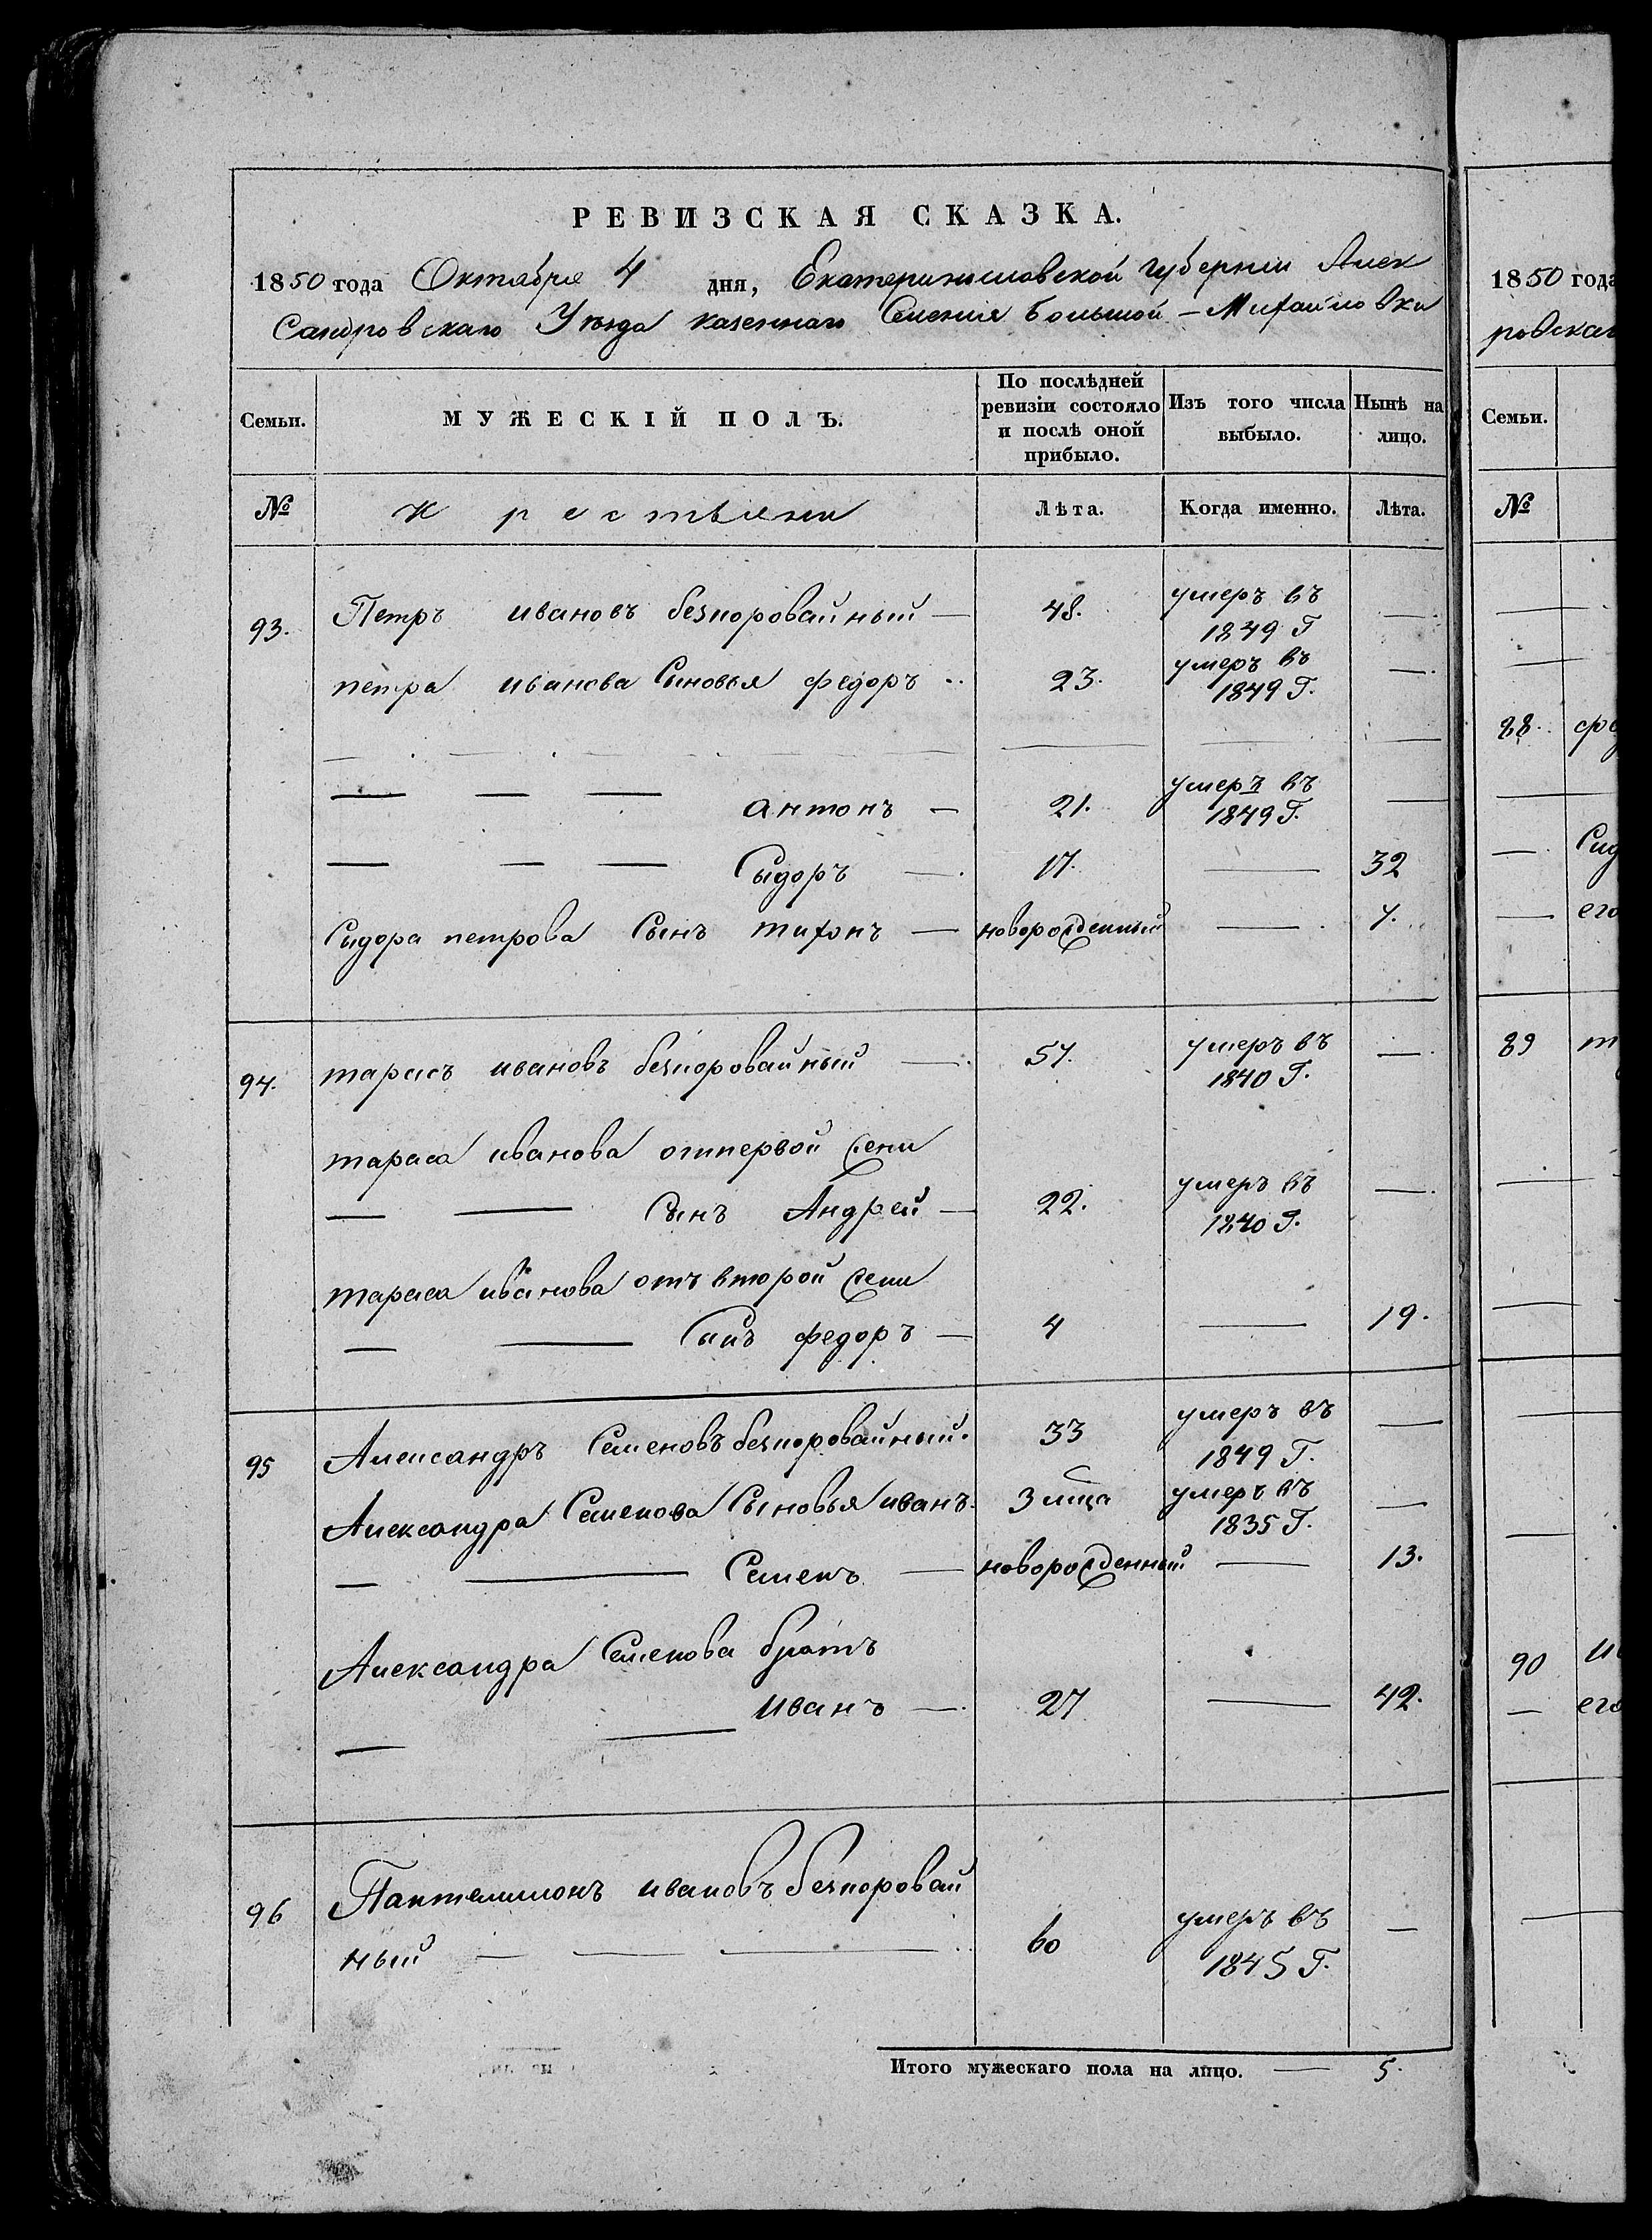 РЕВИЗСКАЯ СКАЗКА.
1850 года Октября 4 дня, Екатеринославской губерніи Алек
сандровскаго Уѣзда казеннаго Селенія Большой-Михайловки
Семьи. МУЖЕСКІЙ ПОЛЪ. По послѣдней ревизіи состояло и послѣ оной прибыло. Изъ того числа выбыло. Нынѣ на лицо.
№ Крестьяни Лѣта. Когда именно. Лѣта.
93. Петръ ивановъ безпоровайный — 48. умеръ въ 1849 Г —
петра иванова Сыновья федоръ 23. умеръ въ 1849 Г. —
— — — антонъ — 21. умеръ въ 1849 Г. —
— — — Сыдоръ — 17. — 32
Сидора петрова Сынъ тихонъ — новорожденный — 7.
94. тарасъ ивановъ безпоровайный — 57. умеръ въ 1840 Г. —
тараса иванова отпервой жени
— — Сынъ Андрей — 22. умеръ въ 1840 Г. —
тараса иванова отъ второй жени
— — Сынъ федоръ — 4 — 19.
95 Александръ Семеновъ безпоровайный. 33 умеръ въ 1849 Г. —
Александра Семенова Сыновья иванъ. 3 мца умеръ въ 1835 Г. —
— — Семенъ — новорожденный — 13.
Александра Семенова братъ
— — иванъ — 27 — 42.
96 Пантелимонъ ивановъ безпоровай
ный — — — 60 умеръ въ 1845 Г. —
Итого мужескаго пола на лицо. — 5.
1850 года
ровскаг
Семьи.
№
88.
89
90
его